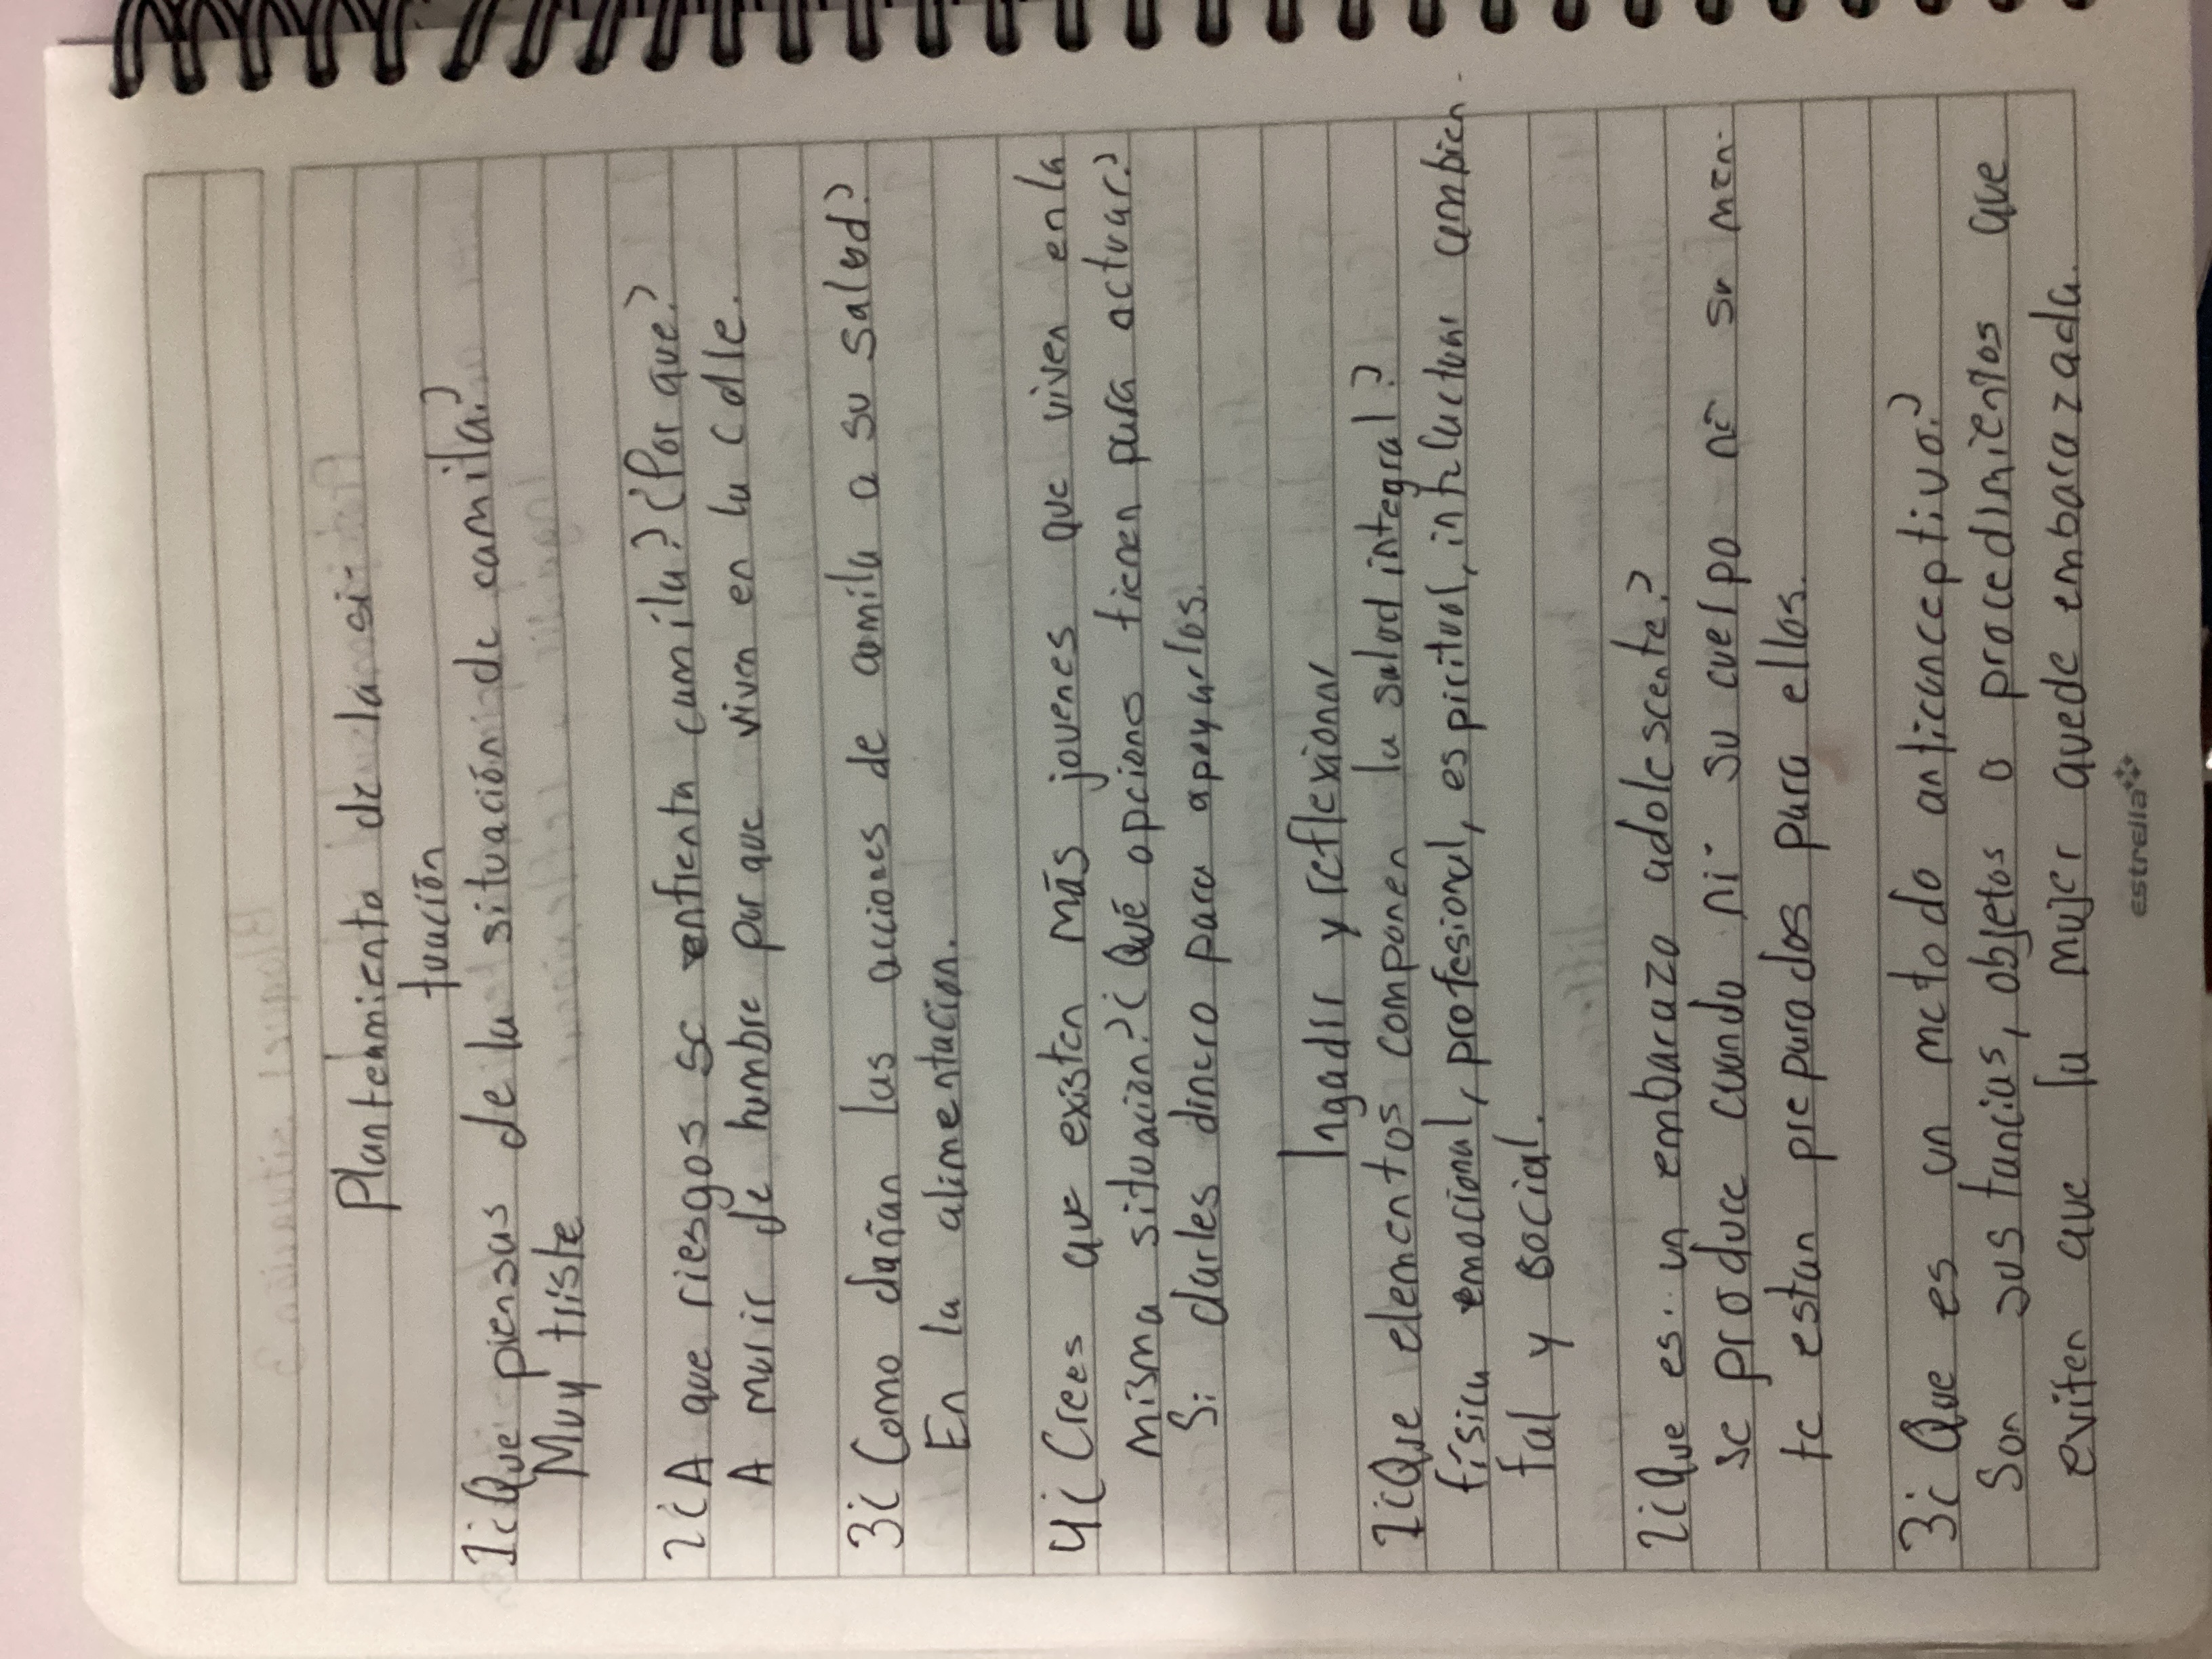 Planteamiento de la si-
tuación
1¿Que piensas de la situación de camila?
Muy triste
2¿A que riesgos se enfrenta camila?¿Por que?
A morir de hambre por que viven en la calle.
3¿Como dañan las acciones de camila a su salud?
En la alimentación.
4¿Crees que existen más jovenes que viven en la
misma situación?¿Qué opciones tienen para actuar?
Si darles dinero para apoyarlos.
Ingadir y reflexionar
1¿Que elementos componen la salud integral?
física emocional, profesional, espiritual, intelectual ambien-
tal y social.
2¿Que es un embarazo adolescente?
se produce cuando ni su cuerpo ni su men-
te estan preparados para ellos.
3¿Que es un metodo anticonceptivo?
Son sustancias, objetos o procedimientos que
eviten que la mujer quede embarazada.
estrella